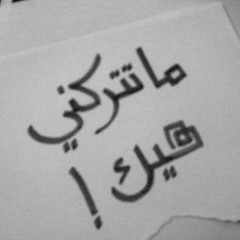 ماتتركني
هيك !